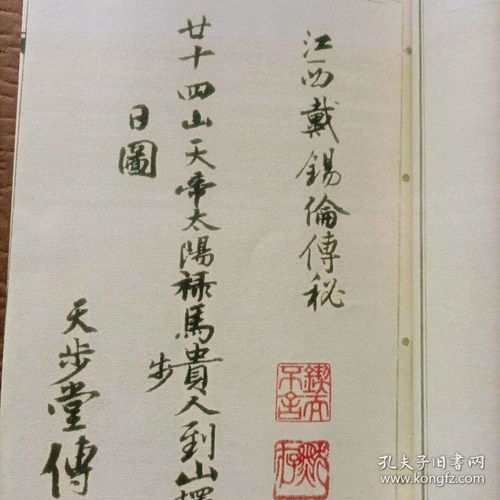 江西戴錫倫傳秘
廿十四山天帝太陽祿馬貴人到山擇
步
日圖
天步堂傳
鍥而不舍
孔夫子旧书网
www.kongfz.com